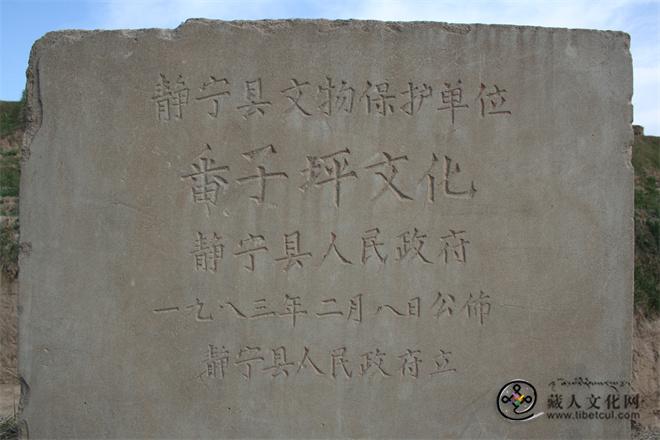 静宁县文物保护单位
番子坪文化
静宁县人民政府
一九八三年二月八日公佈
静宁县人民政府立
藏人文化网
www.tibetcul.com